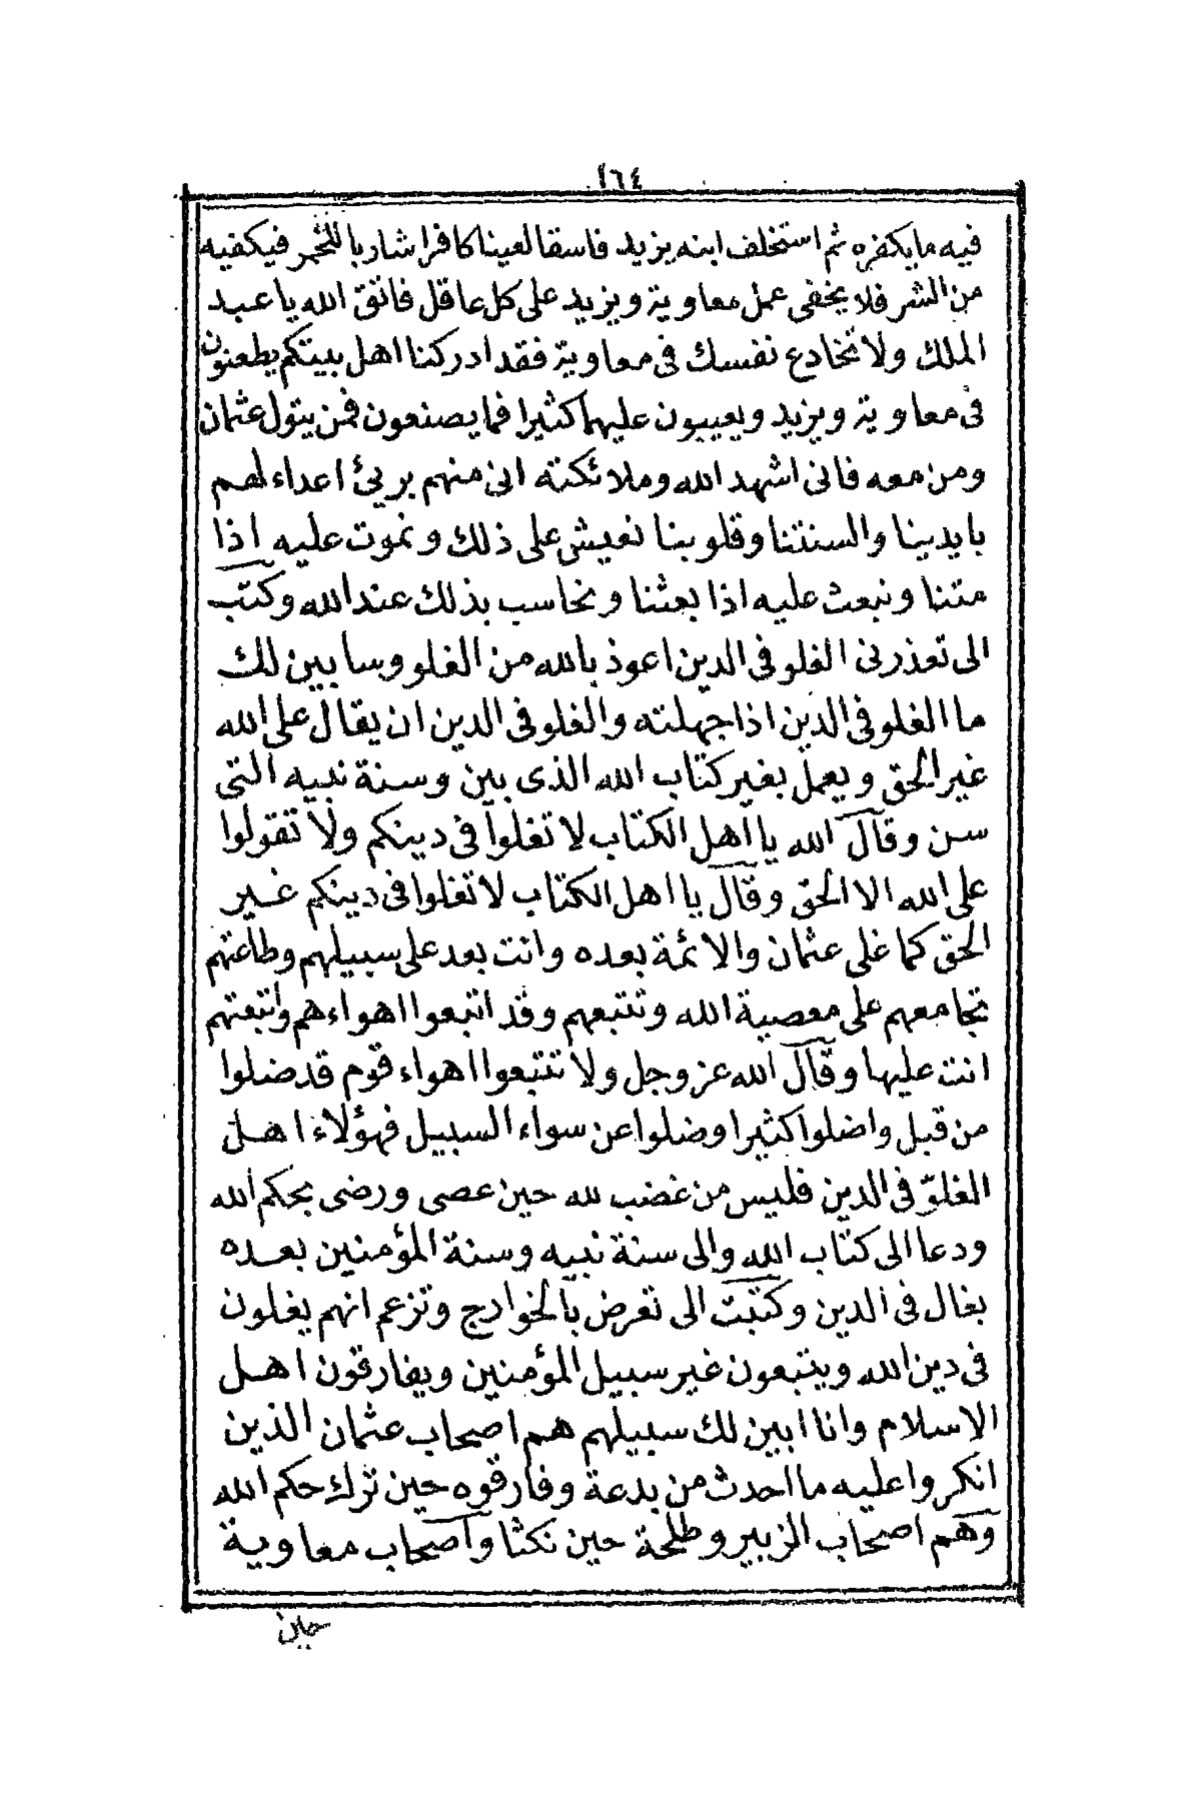 ١٦٤
فيه ما يكفره ثم استخلف ابنه يزيد فاسقا لعينا كافرا شاربا للخمر فيكفيه
من الشر فلا يخفى عمل معاوية ويزيد على كل عاقل فاتق الله يا عبد
الملك ولا تخادع نفسك في معاوية فقد ادركنا اهل بيتكم يطعنون
في معاوية ويزيد ويعيبون عليهما كثيرا فما يصنعون فمن يتول عثمان
ومن معه فانى اشهد الله وملائكته انى منهم بريئ اعداء لهم
بايدينا والسنتنا وقلوبنا نعيش على ذلك ونموت عليه اذا
متنا ونبعث عليه اذا بعثنا ونحاسب بذلك عند الله وكتب
الى تعذرنى الغلو في الدين اعوذ بالله من الغلو وسابين لك
ما الغلو في الدين اذا جهلته والغلو في الدين ان يقال على الله
غير الحق ويعمل بغير كتاب الله الذى بين وسنة نبيه التى
سن وقال الله يا اهل الكتاب لا تغلوا في دينكم ولا تقولوا
على الله الا الحق وقال يا اهل الكتاب لا تغلوا في دينكم غير
الحق كما غلى عثمان والائمة بعده وانت بعد على سبيلهم وطاعتهم
تجامعهم على معصية الله وتتبعهم وقد اتبعوا اهواءهم واتبعتهم
انت عليها وقال الله عز وجل ولا تتبعوا اهواء قوم قد ضلوا
من قبل واضلوا كثيرا وضلوا عن سواء السبيل فهؤلاء اهل
الغلوّ في الدين فليس من غضب لله حين عصى ورضى بحكم الله
ودعا الى كتاب الله والى سنة نبيه وسنة المؤمنين بعده
بغال في الدين وكتبت الى تعرض بالخوارج وتزعم انهم يغلون
في دين الله ويتبعون غير سبيل المؤمنين ويفارقون اهل
الاسلام وانا ابين لك سبيلهم هم اصحاب عثمان الذين
انكروا عليه ما احدث من بدعة وفارقوه حين ترك حكم الله
وهم اصحاب الزبير وطلحة حين نكثا واصحاب معاوية
حين